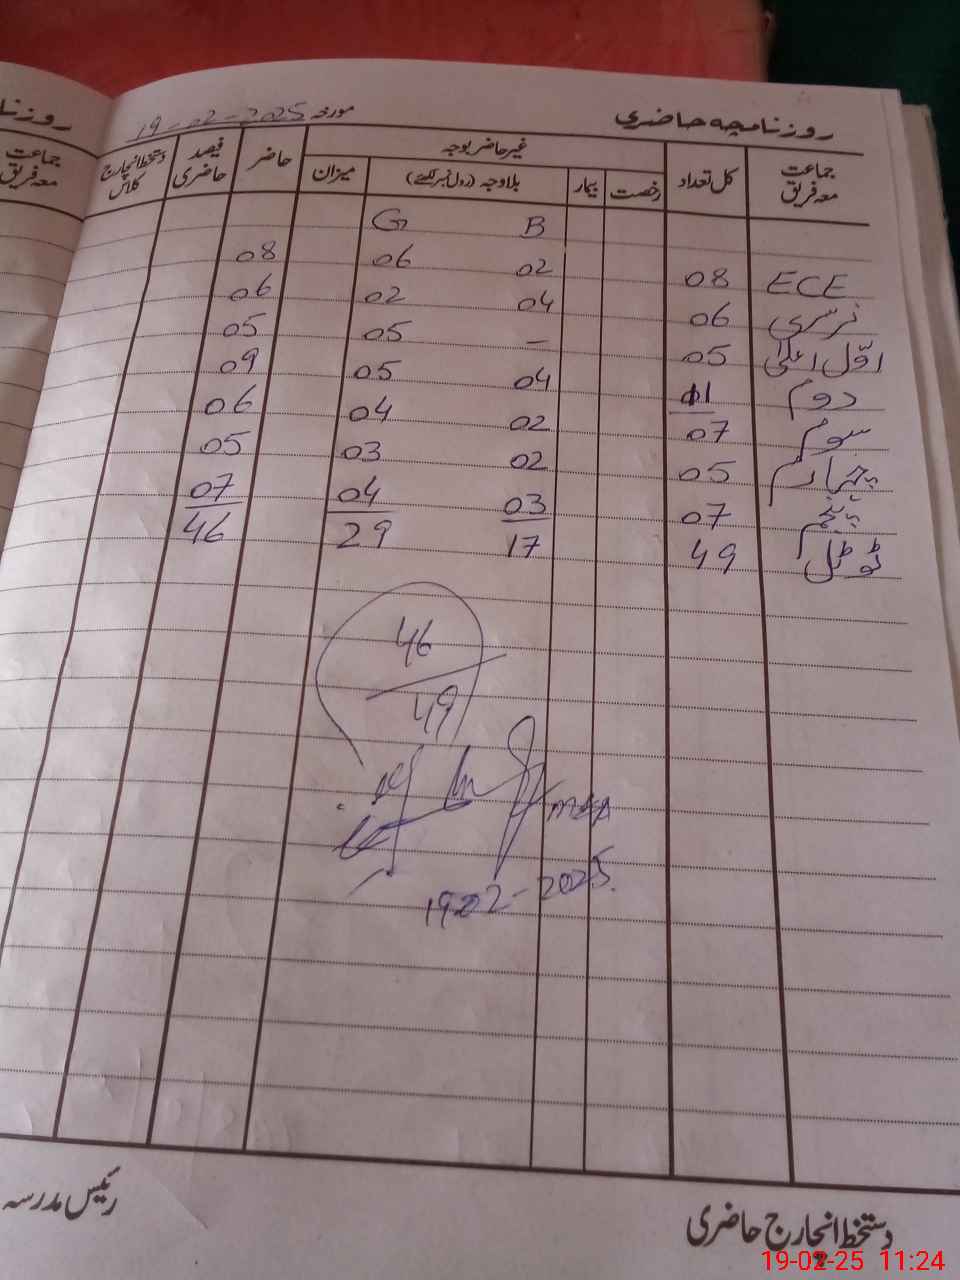 روزنامچہ حاضری مورخہ 19-02-2025
جماعت معہ فریق کل تعداد غیر حاضر بوجہ حاضر فیصد حاضری دستخط انچارج کلاس
رخصت بیمار بلاوجہ (رول نمبر لکھئے) میزان
B G
ECE 08 02 06 08
نرسری 06 04 02 06
اوّل اعلیٰ 05 – 05 05
دوم 11 04 05 09
سوم 07 02 04 06
چہارم 05 02 03 05
پنجم 07 03 04 07
ٹوٹل 49 17 29 46
46
49
MEA
19-02-2025
دستخط انچارج حاضری رئیس مدرسہ
روزنا
جماعت
معہ فریق
19-02-25 11:24